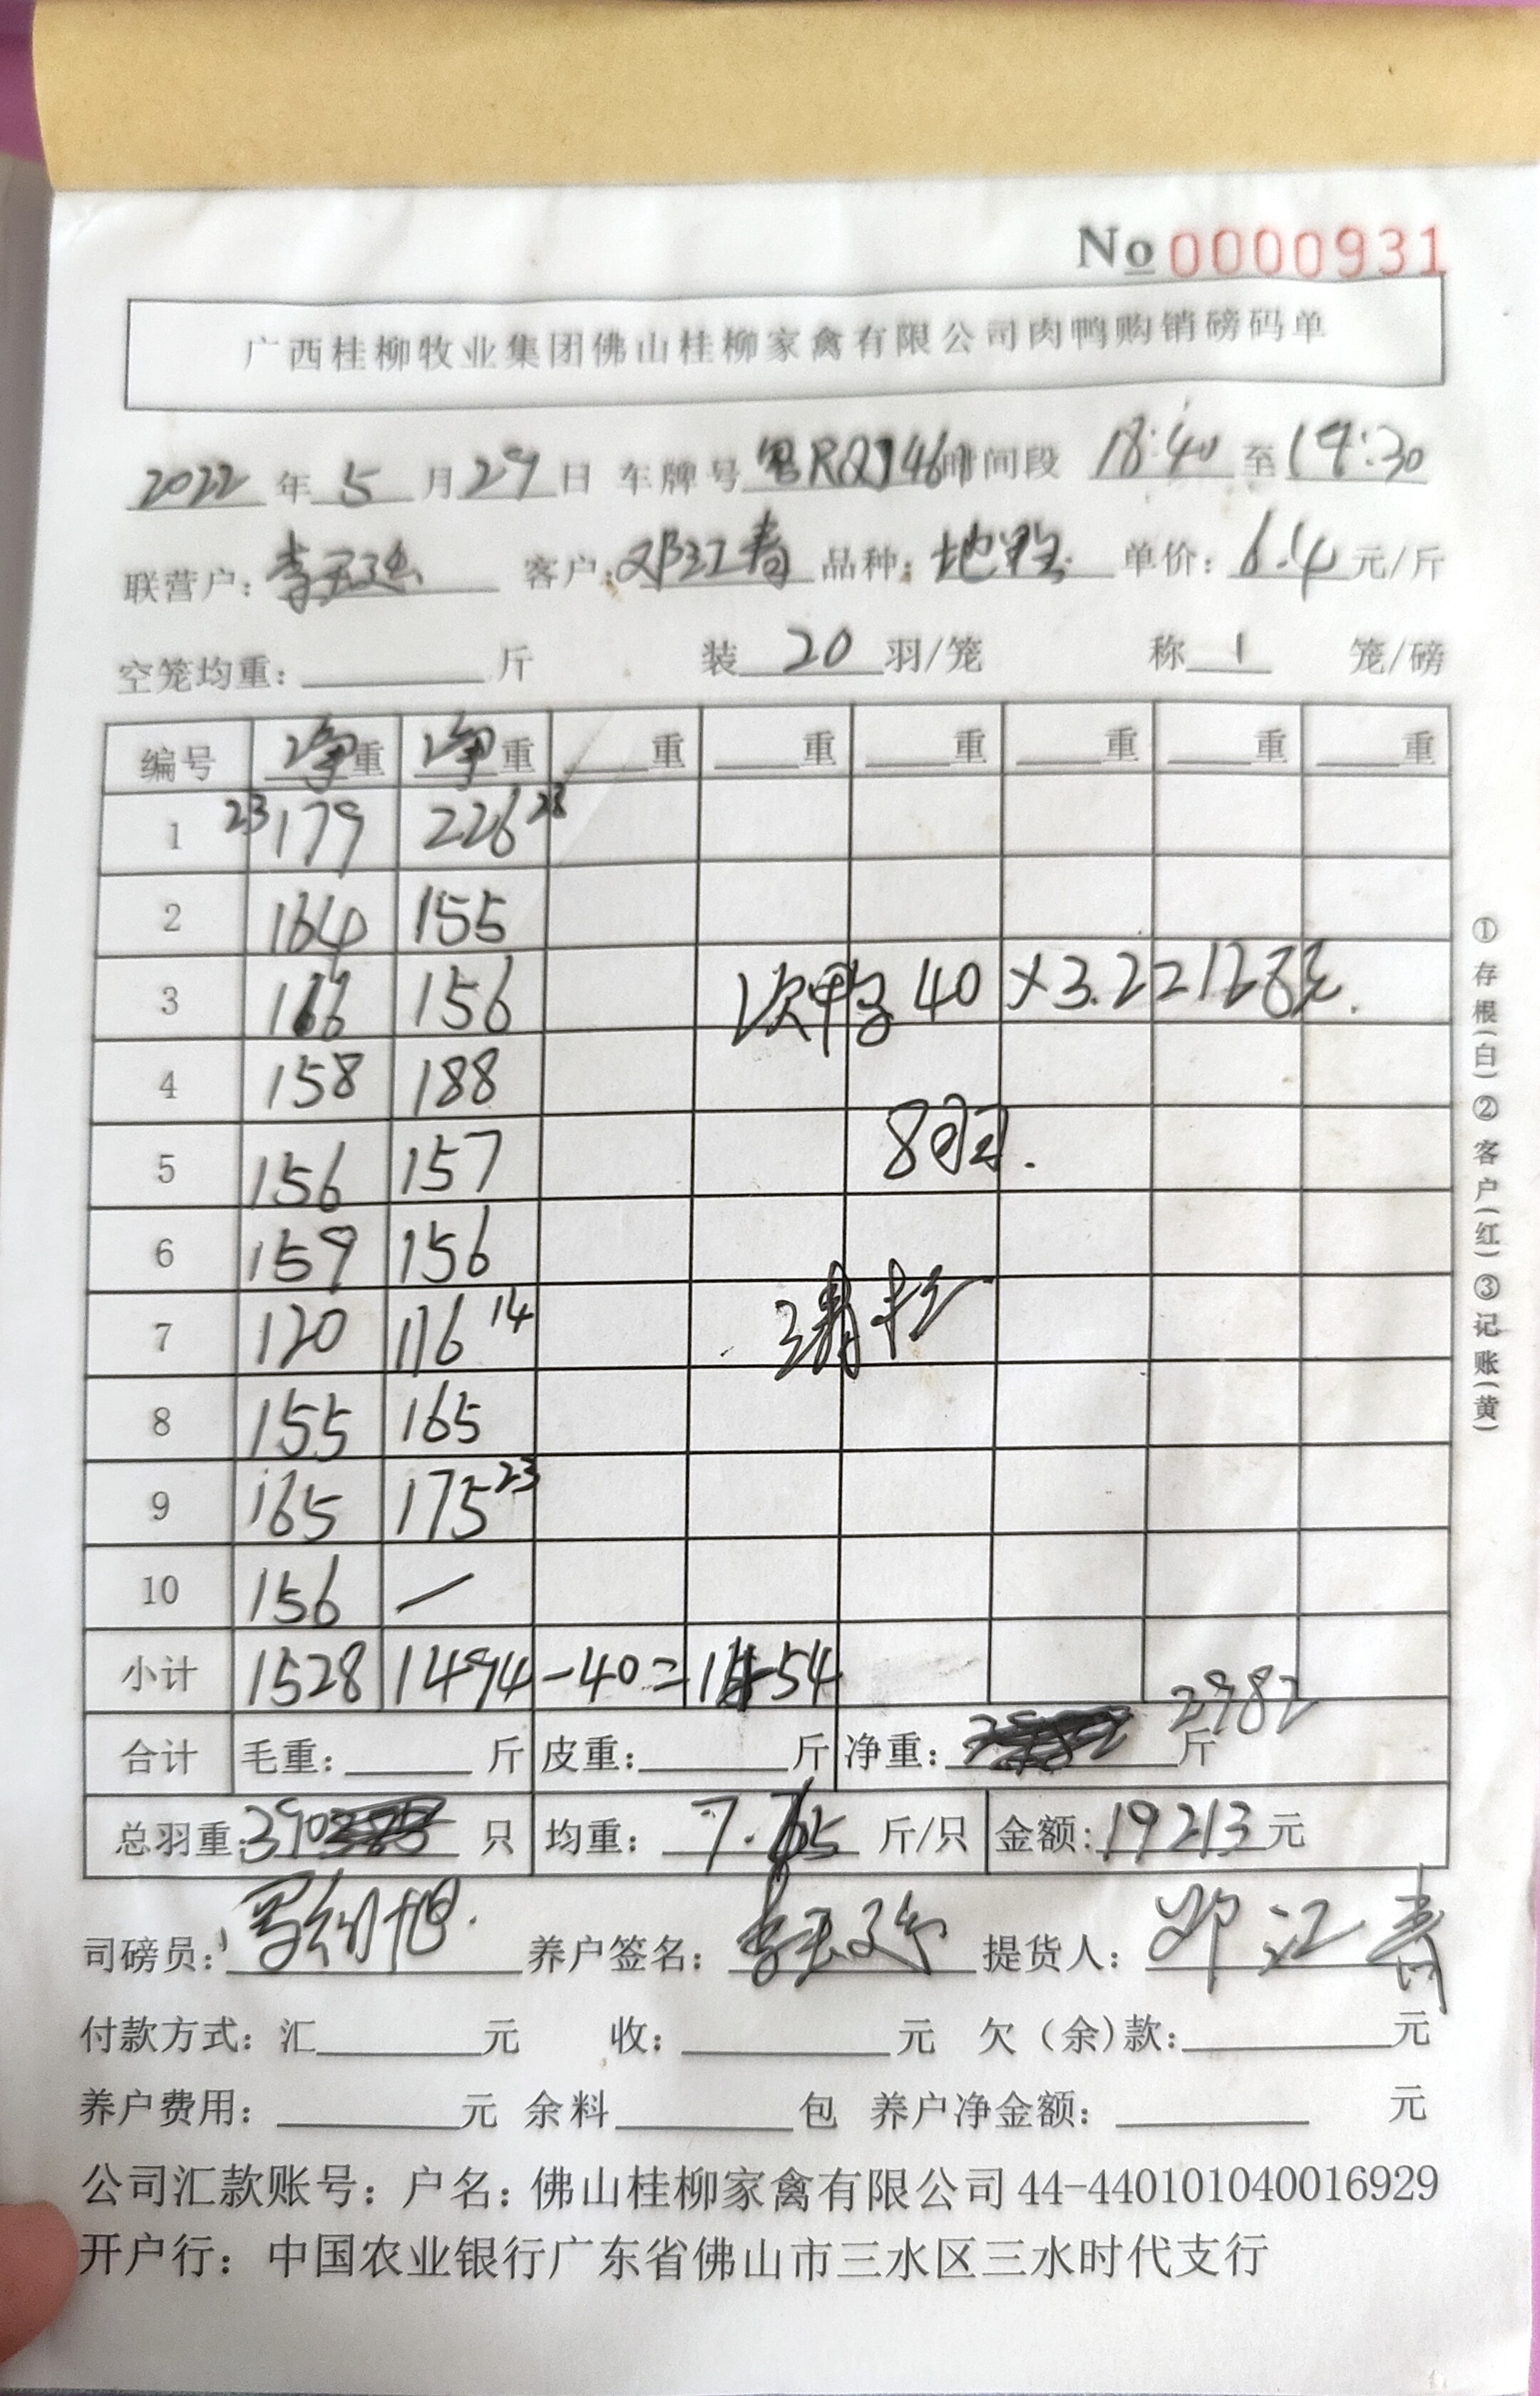 No 0000931
广西桂柳牧业集团佛山桂柳家禽有限公司肉鸭购销磅码单
2022 年 5 月 29 日 车牌号 粤RQJ461 时间段 18:40 至 19:30
联营户: 李 客户: 邓江青 品种: 地 单价: 6.4 元/斤
空笼均重: 斤 装 20 羽/笼 称 1 笼/磅
编号 净重 净重 重 重 重 重 重 重
1 23 179 226 28
2 164 155
3 166 156 次鸭子 40 × 3.2 = 128元.
4 158 188
5 156 157 8羽.
6 159 156
7 120 116 14
8 155 165
9 165 175 23
10 156 —
小计 1528 1494 -40= 1454
合计 毛重: 斤 皮重: 斤 净重: 2982 斤
总羽重: 390 只 均重: 7.65 斤/只 金额: 19213 元
司磅员: 养户签名: 李 提货人: 邓江青
付款方式: 汇 元 收: 元 欠(余)款: 元
养户费用: 元 余料 包 养户净金额: 元
公司汇款账号: 户名: 佛山桂柳家禽有限公司 44-440101040016929
开户行: 中国农业银行广东省佛山市三水区三水时代支行
①存根(白)②客户(红)③记账(黄)